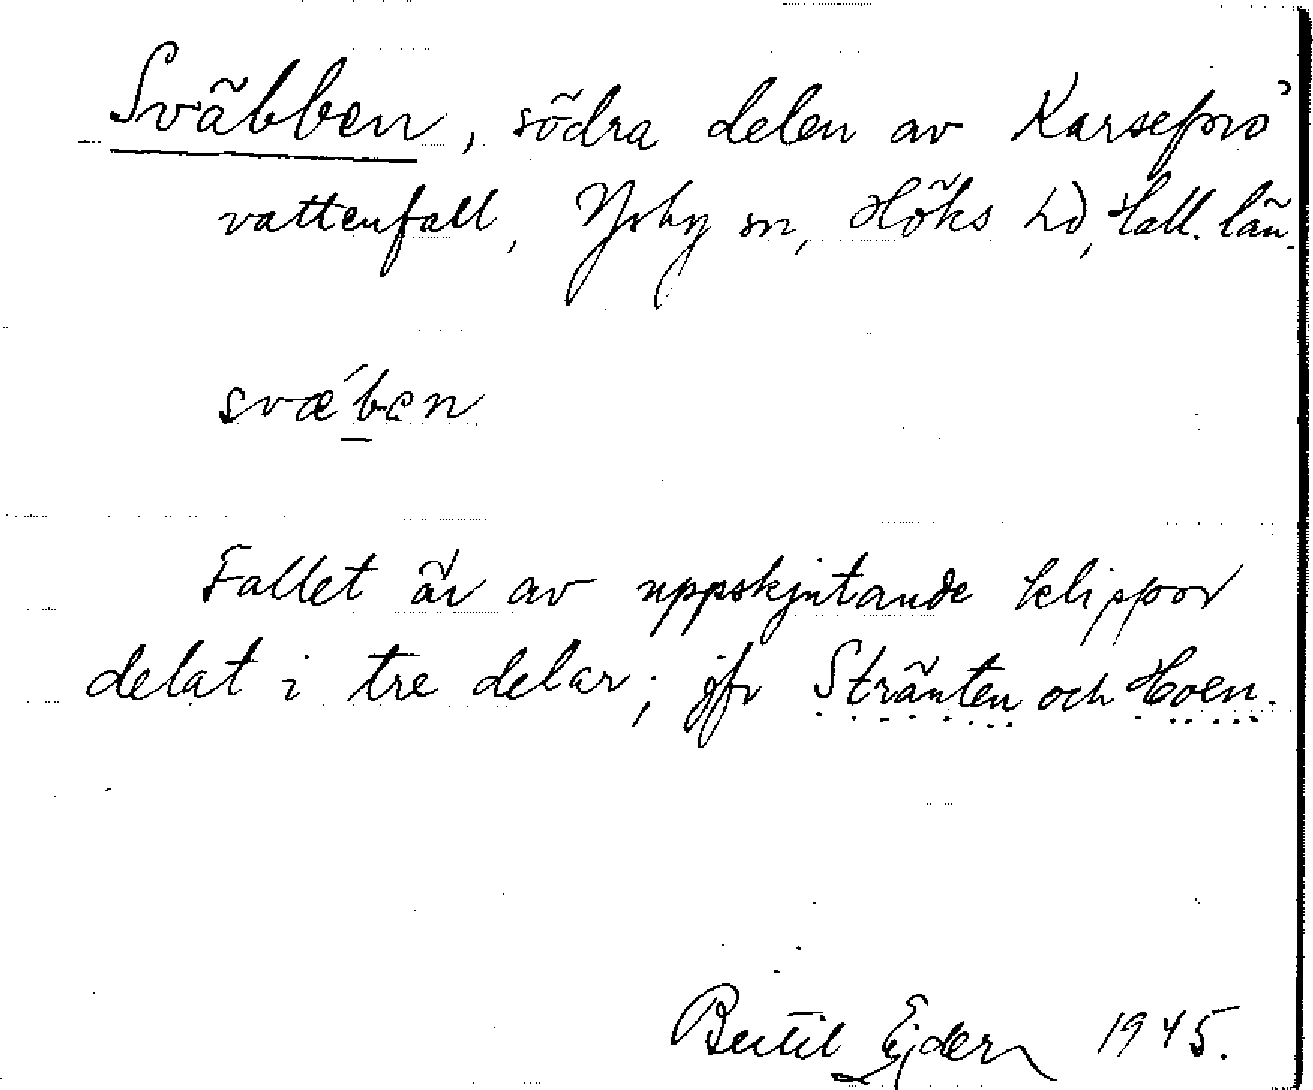 Sväbben, södra delen av Karsefors
vattenfall, Ysby sn, Höks hd, Hall. län.
svæ´ben
Fallet är av uppskjutande klippor
delat i tre delar; jfr Stränten och Hoen.
Bertil Ejder 1945.